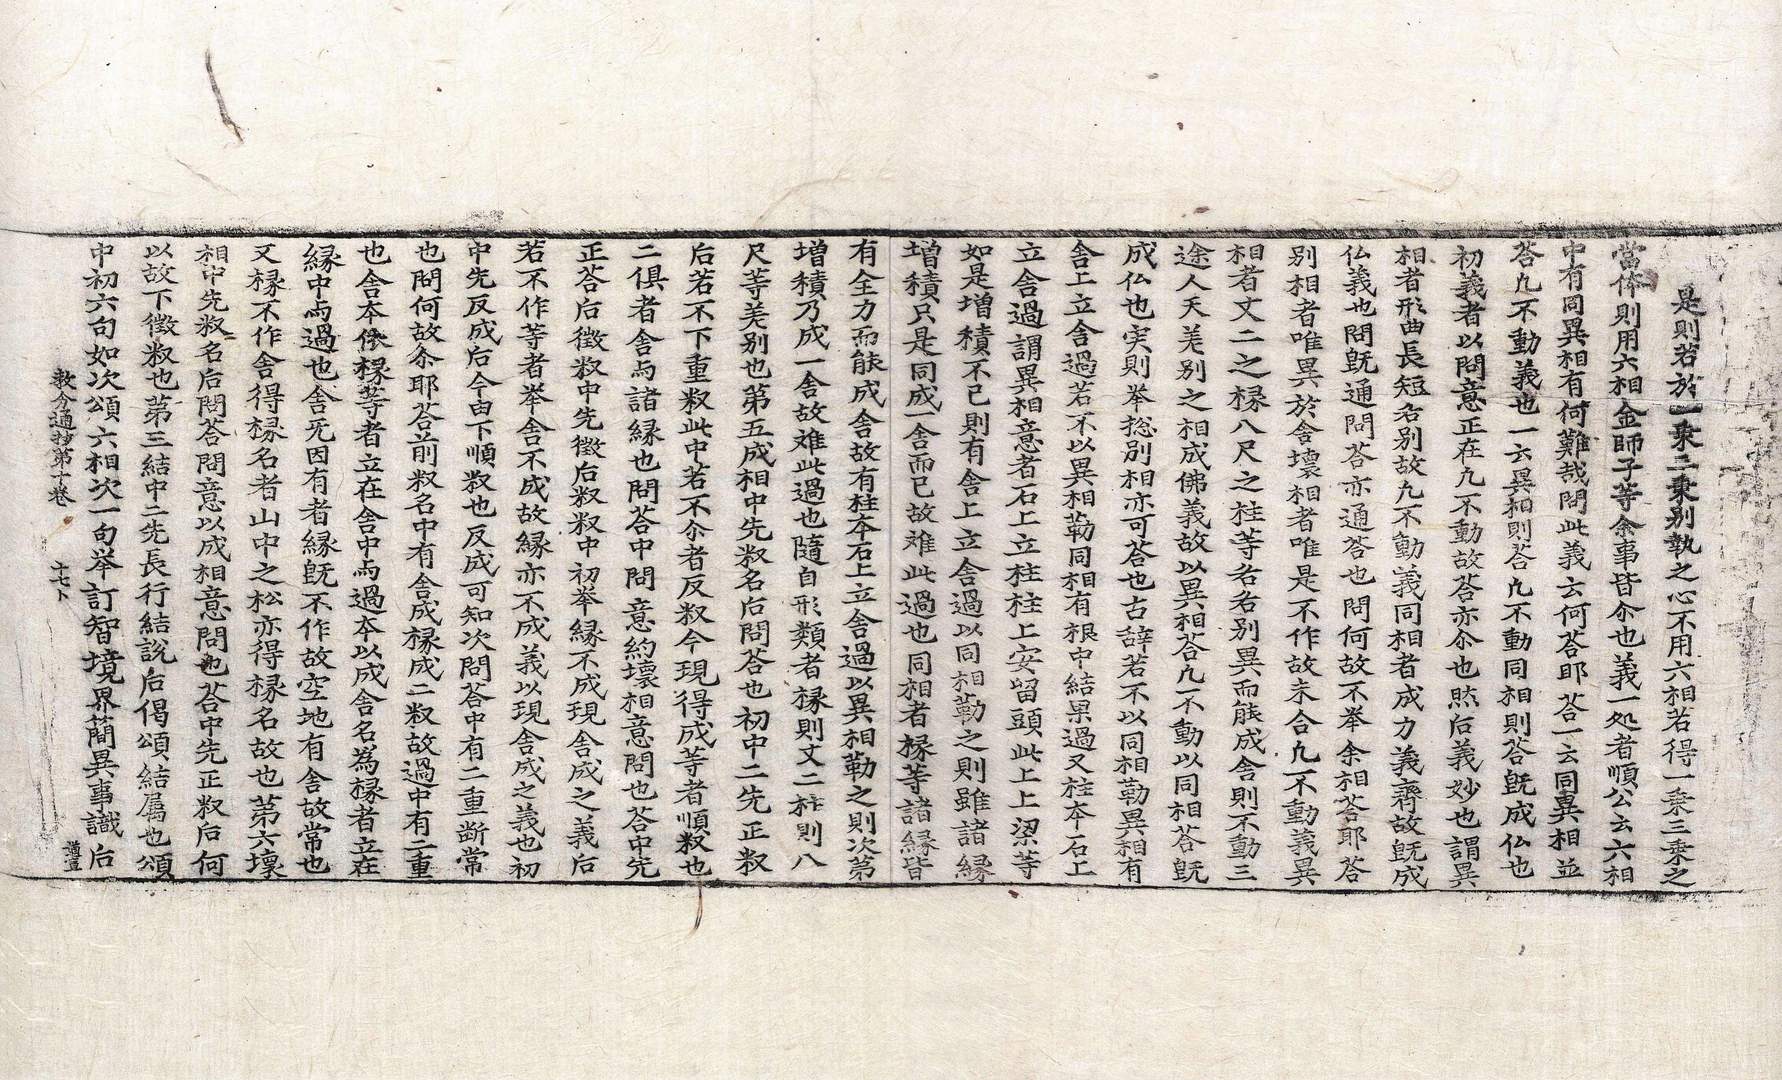 是則若於一乘三乘別執之心不用六相若得一乘三乘之
當体則用六相金師子等余事皆尒也義一処者順公云六相
中有同異相有何難哉問此義云何荅耶荅一云同異相並
荅九不動義也一云異相則荅九不動同相則荅旣成仏也
初義者以問意正在九不動故荅亦尒也然后義妙也謂異
相者形曲長短名別故九不動義同相者成力義齊故旣成
仏義也問旣通問荅亦通荅也問何故不举余相荅耶荅
別相者唯異於舍壞相者唯是不作故未合九不動義異
相者丈二之椽八尺之柱等名名別異而能成舍則不動三
途人天羌別之相成佛義故以異相荅九不動以同相荅旣
成仏也実則举捴別相亦可荅也古辞若不以同相勒異相有
舍上立舍過若不以異相勒同相有根中結果過又柱本石上
立舍過謂異相意者石上立柱柱上安留頭此上上梁等
如是增積不已則有舍上立舍過以同相勒之則雖諸縁
增積只是同成一舍而已故难此過也同相者椽等諸縁皆
有全力而能成舍故有柱本石上立舍過以異相勒之則次第
增積乃成一舍故难此過也隨自形類者椽則丈二柱則八
尺等羌別也第五成相中先叙名后問荅也初中二先正叙
后若不下重叙此中若不尒者反叙今現得成等者順叙也
二俱者舍与諸縁也問荅中問意約壞相意問也荅中先
正荅后徵叙中先徵后叙叙中初举縁不成現舍成之義后
若不作等者举舍不成故縁亦不成義以現舍成之義也初
中先反成后今由下順叙也反成可知次問荅中有二重断常
也問何故尒耶荅前叙名中有舍成椽成二叙故過中有二重
也舍本俢椽等者立在舍中与過本以成舍名為椽者立在
縁中与過也舍旡因有者縁旣不作故空地有舍故常也
又椽不作舍得椽名者山中之松亦得椽名故也第六壞
相中先叙名后問荅問意以成相意問也荅中先正叙后何
以故下徵叙也第三結中二先長行結說后偈頌結属也頌
中初六句如次頌六相次一句举訂智境界簡異事識后
教分通抄第十卷 十七卜